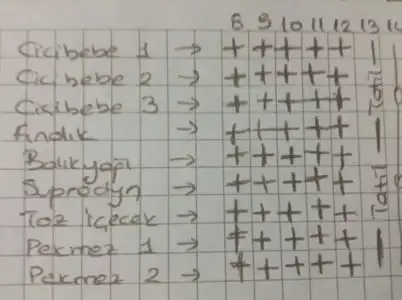 8 9 10 11 12 13 14
Cicibebe 1 → + + + + + —
Cicibebe 2 → + + + + +
Cicibebe 3 → + + + + +
Fındık → + + + + + —
Balıkyağı → + + + + +
Supradyn → + + + + +
Toz içecek → + + + + +
Pekmez 1 → + + + + + —
Pekmez 2 → + + + + +